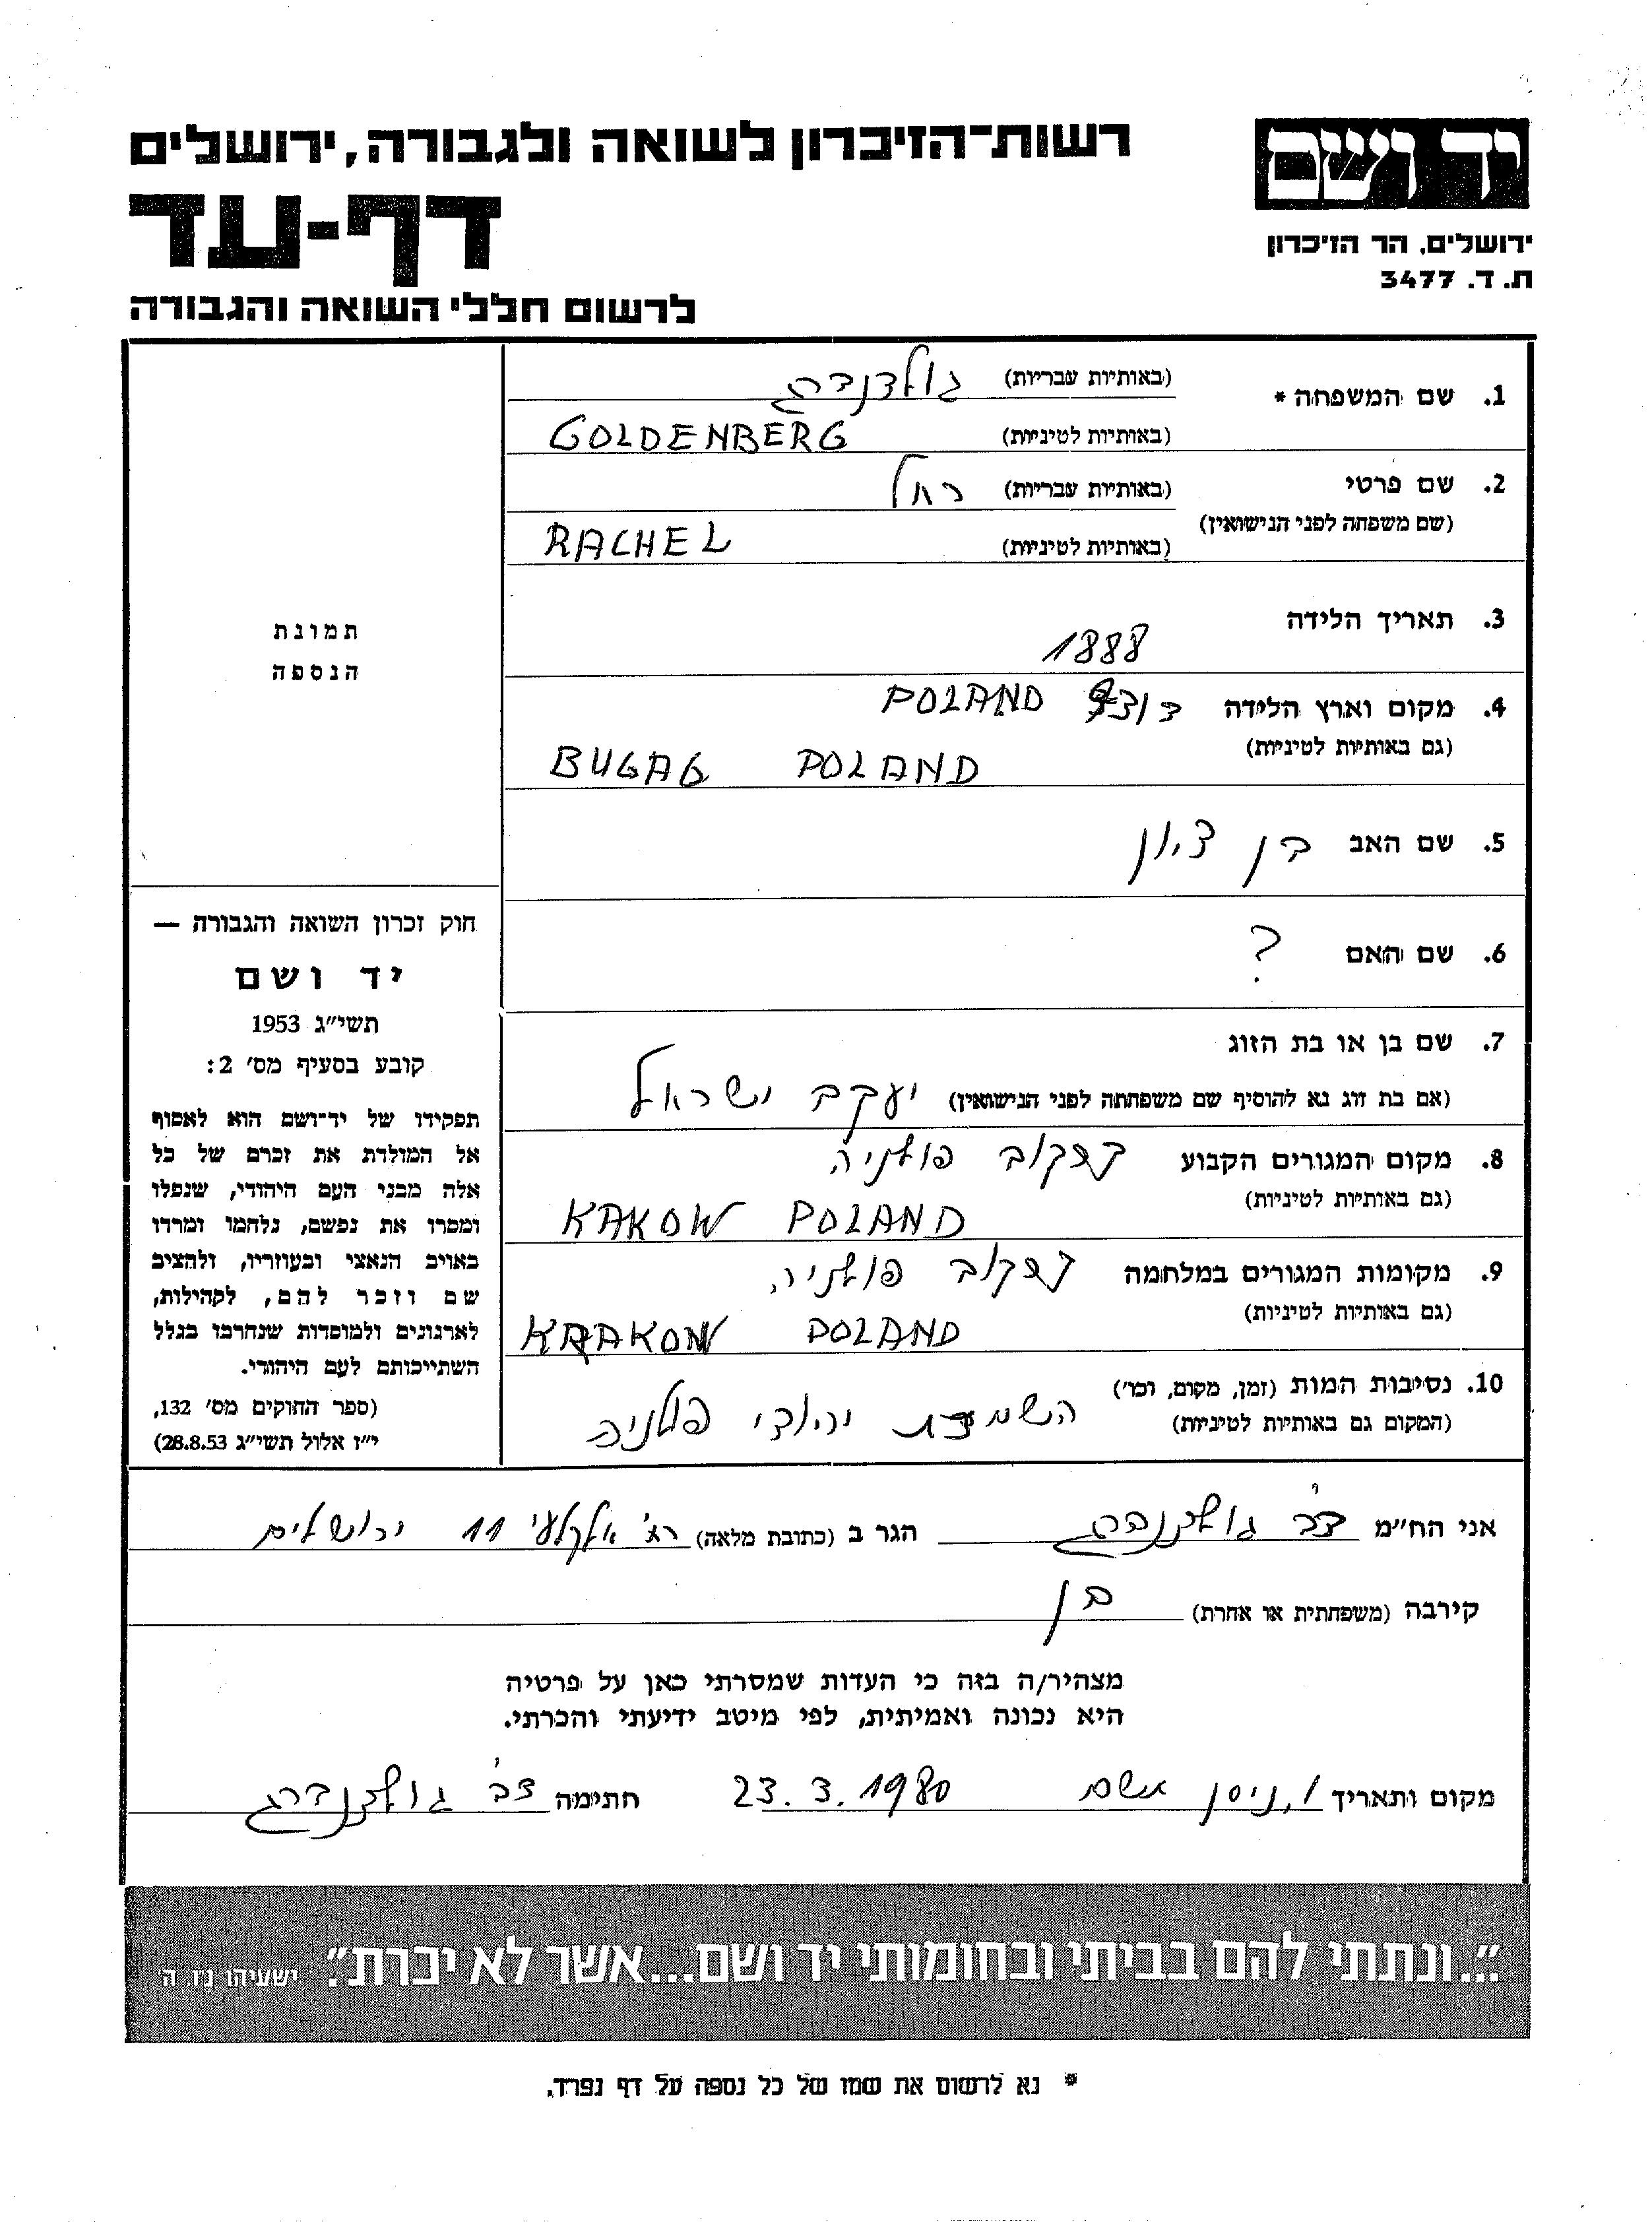 רשות־הזיכרון לשואה ולגבורה, ירושלים
דף-עד
לרשום חללי השואה והגבורה
יד ושם
ירושלים, הר הזיכרון
ת. ד. 3477
1. שם המשפחה * (באותיות עבריות) גולדנברג
(באותיות לטיניות) GOLDENBERG
2. שם פרטי (באותיות עבריות) רחל
(שם משפחה לפני הנישואין)
(באותיות לטיניות) RACHEL
3. תאריך הלידה 1888
4. מקום וארץ הלידה POLAND
(גם באותיות לטיניות) BUGAG POLAND
5. שם האב בן ציון
6. שם האם ?
7. שם בן או בת הזוג
(אם בת זוג נא להוסיף שם משפחתה לפני הנישואין) יעקב ישראל
8. מקום המגורים הקבוע קרקוב פולניה
(גם באותיות לטיניות) KAKOW POLAND
9. מקומות המגורים במלחמה קרקוב פולניה
(גם באותיות לטיניות) KRAKOW POLAND
10. נסיבות המות (זמן, מקום, וכו')
(המקום גם באותיות לטיניות) השמדת יהודי פולניה
תמונת
הנספה
חוק זכרון השואה והגבורה —
יד ושם
תשי״ג 1953
קובע בסעיף מס' 2:
תפקידו של יד־ושם הוא לאסוף
אל המולדת את זכרם של כל
אלה מבני העם היהודי, שנפלו
ומסרו את נפשם, נלחמו ומרדו
באויב הנאצי ובעוזריו, ולהציב
שם וזכר להם, לקהילות,
לארגונים ולמוסדות שנחרבו בגלל
השתייכותם לעם היהודי.
(ספר החוקים מס' 132,
י״ז אלול תשי״ג 28.8.53)
אני הח״מ צבי גולדנברג הגר ב (כתובת מלאה) רח' אלקלעי 11 ירושלים
קירבה (משפחתית או אחרת) בן
מצהיר/ה בזה כי העדות שמסרתי כאן על פרטיה
היא נכונה ואמיתית, לפי מיטב ידיעתי והכרתי.
מקום ותאריך ו' ניסן תשם 23.3.1980 חתימה צבי גולדנברג
"...ונתתי להם בביתי ובחומותי יד ושם...אשר לא יכרת". ישעיהו נ״ו, ה'
* נא לרשום את שמו של כל נספה על דף נפרד.